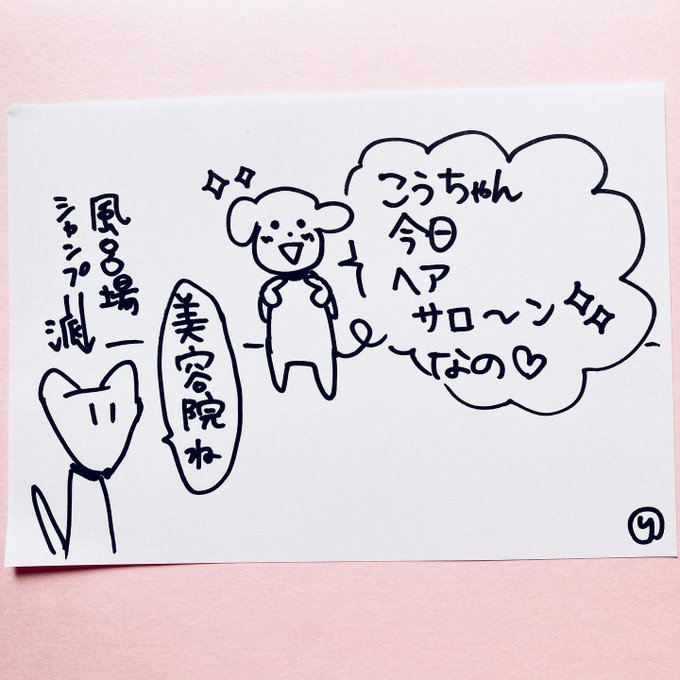 こうちゃん
今日
ヘア
サロ〜ン
なの♡
美容院ね
風呂場
シャンプー
派
り